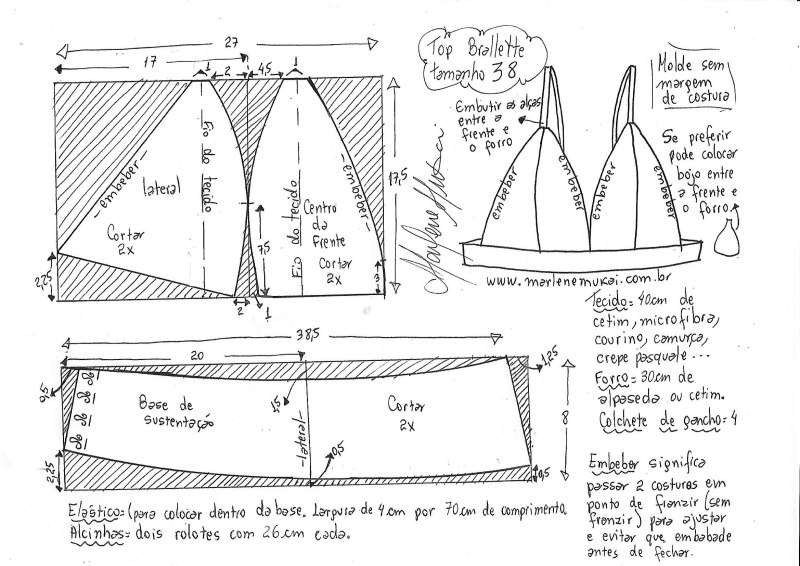 27
17
1
2
4,5
1
Fio do tecido
embeber
lateral
Cortar
2x
2,25
2
1
7,5
Fio do tecido
Centro
da
Frente
Cortar
2x
embeber
3
17,5
Top Brallette
tamanho 38
Embutir as alças
entre a
frente e
o forro
Marlene Mukai
embeber
embeber
embeber
embeber
Molde sem
margem
de costura
Se preferir
pode colocar
bojo entre
a frente e
o forro
www.marlenemukai.com.br
Tecido= 40cm de
cetim, microfibra,
courino, camurça,
crepe pasquale...
Forro= 30cm de
alpaseda ou cetim.
Colchete de gancho= 4
38,5
20
0,5
2,25
Base de
sustentação
1,5
lateral
0,5
Cortar
2x
1,25
8
0,5
Elástico= (para colocar dentro da base. Largura de 4cm por 70cm de comprimento.
Alcinhas= dois rolotes com 26cm cada.
Embeber significa
passar 2 costuras em
ponto de franzir (sem
franzir) para ajustar
e evitar que embabade
antes de fechar.